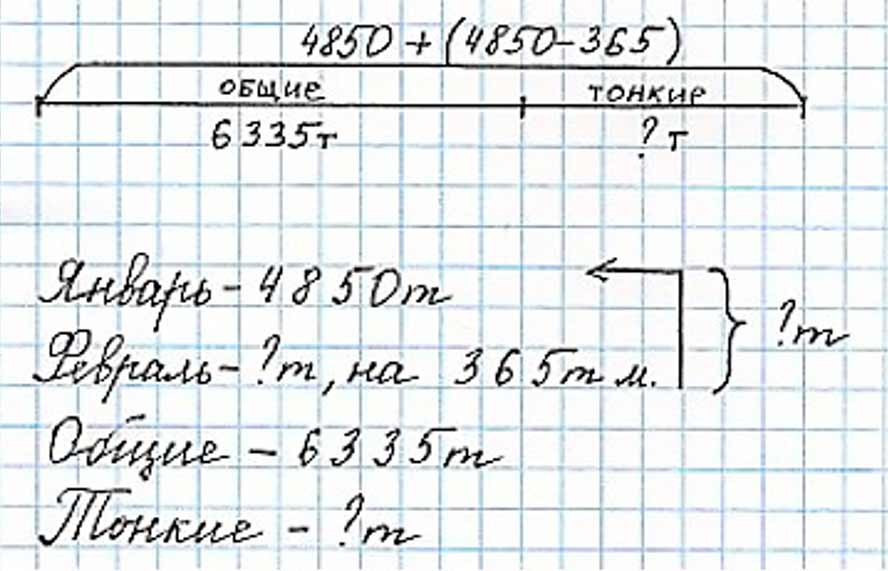 4850 + (4850-365)
общие тонкие
6335т ?т
Январь - 4850т
Февраль - ?т, на 365т м. ?т
Общие - 6335т
Тонкие - ?т